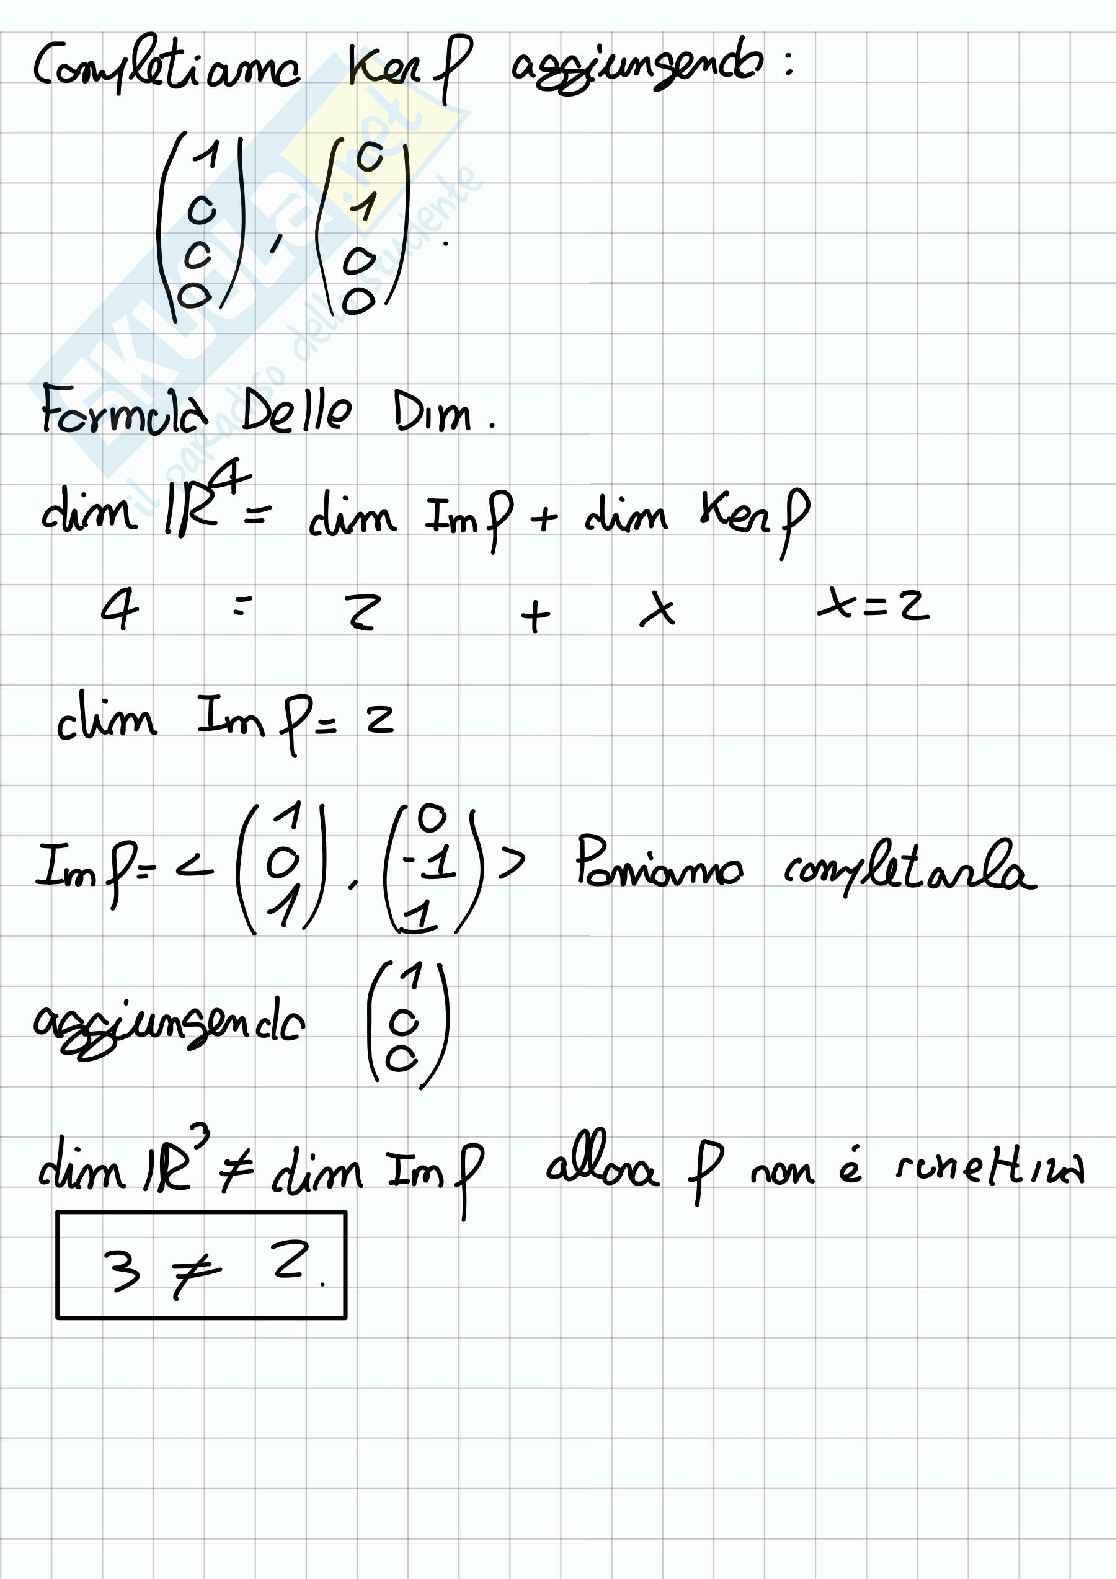 Completiamo Ker f aggiungendo:
(1 0 0 0), (0 1 0 0).
Formula Delle Dim.
dim ℝ⁴ = dim Im f + dim Ker f
4 = 2 + x x=2
dim Im f = 2
Im f = < (1 0 1), (0 -1 1) > Possiamo completarla
aggiungendo (1 0 0)
dim ℝ³ ≠ dim Im f allora f non é suriettiva
3 ≠ 2.
SKUOLA.net
il paradiso dello studente